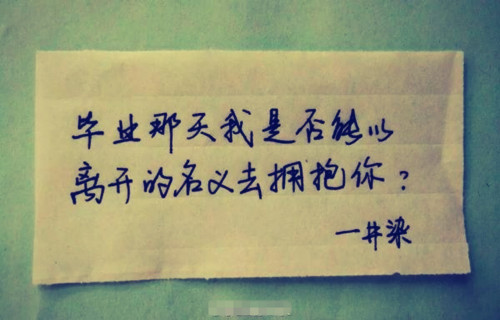 毕业那天我是否能以
离开的名义去拥抱你?
一井染